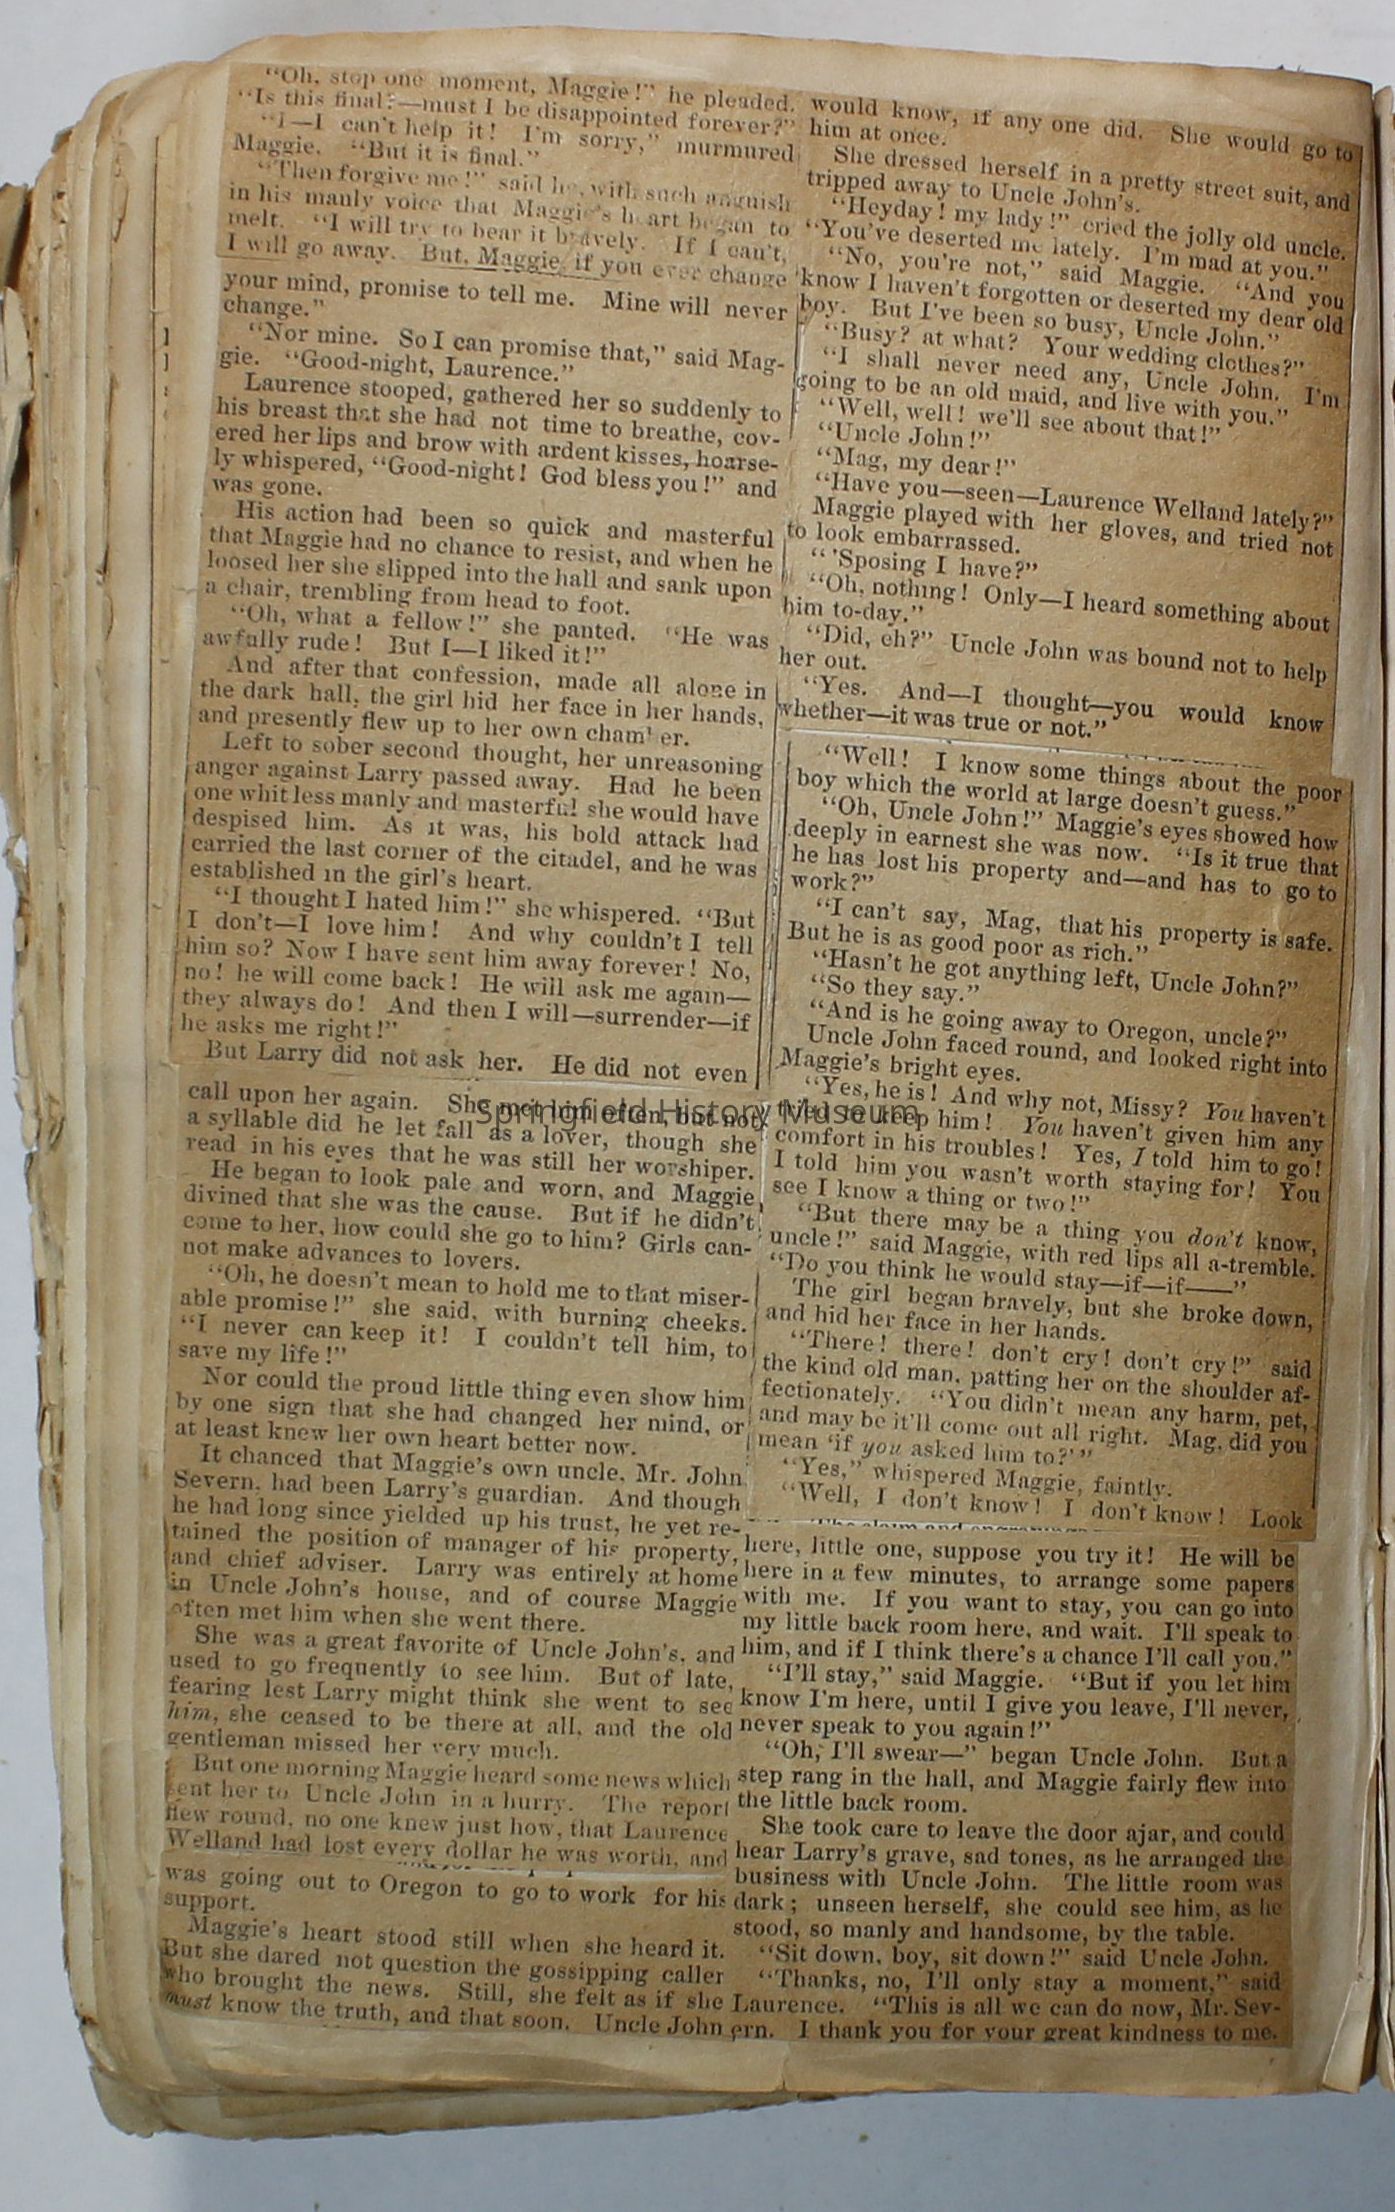 "Oh, stop one moment, Maggie!" he pleaded.
"Is this final?—must I be disappointed forever?"
"I—I can't help it! I'm sorry," murmured
Maggie. "But it is final."
"Then forgive me!" said he, with such anguish
in his manly voice that Maggie's heart began to
melt. "I will try to bear it bravely. If I can't,
I will go away. But, Maggie, if you ever change
your mind, promise to tell me. Mine will never
change."
"Nor mine. So I can promise that," said Mag-
gie. "Good-night, Laurence."
Laurence stooped, gathered her so suddenly to
his breast that she had not time to breathe, cov-
ered her lips and brow with ardent kisses, hoarse-
ly whispered, "Good-night! God bless you!" and
was gone.
His action had been so quick and masterful
that Maggie had no chance to resist, and when he
loosed her she slipped into the hall and sank upon
a chair, trembling from head to foot.
"Oh, what a fellow!" she panted. "He was
awfully rude! But I—I liked it!"
And after that confession, made all alone in
the dark hall, the girl hid her face in her hands,
and presently flew up to her own cham' er.
Left to sober second thought, her unreasoning
anger against Larry passed away. Had he been
one whit less manly and masterful she would have
despised him. As it was, his bold attack had
carried the last corner of the citadel, and he was
established in the girl's heart.
"I thought I hated him!" she whispered. "But
I don't—I love him! And why couldn't I tell
him so? Now I have sent him away forever! No,
no! he will come back! He will ask me again—
they always do! And then I will—surrender—if
he asks me right!"
But Larry did not ask her. He did not even
call upon her again. She met him often, but not
a syllable did he let fall as a lover, though she
read in his eyes that he was still her worshiper.
He began to look pale and worn, and Maggie
divined that she was the cause. But if he didn't
come to her, how could she go to him? Girls can-
not make advances to lovers.
"Oh, he doesn't mean to hold me to that miser-
able promise!" she said, with burning cheeks.
"I never can keep it! I couldn't tell him, to
save my life!"
Nor could the proud little thing even show him
by one sign that she had changed her mind, or
at least knew her own heart better now.
It chanced that Maggie's own uncle, Mr. John
Severn, had been Larry's guardian. And though
he had long since yielded up his trust, he yet re-
tained the position of manager of his property,
and chief adviser. Larry was entirely at home
in Uncle John's house, and of course Maggie
often met him when she went there.
She was a great favorite of Uncle John's, and
used to go frequently to see him. But of late,
fearing lest Larry might think she went to see
him, she ceased to be there at all, and the old
gentleman missed her very much.
But one morning Maggie heard some news which
sent her to Uncle John in a hurry. The report
flew round, no one knew just how, that Laurence
Welland had lost every dollar he was worth, and
was going out to Oregon to go to work for his
support.
Maggie's heart stood still when she heard it.
But she dared not question the gossipping caller
who brought the news. Still, she felt as if she
must know the truth, and that soon. Uncle John
would know, if any one did. She would go to
him at once.
She dressed herself in a pretty street suit, and
tripped away to Uncle John's.
"Heyday! my lady!" cried the jolly old uncle.
"You've deserted me lately. I'm mad at you."
"No, you're not," said Maggie. "And you
know I haven't forgotten or deserted my dear old
boy. But I've been so busy, Uncle John."
"Busy? at what? Your wedding clothes?"
"I shall never need any, Uncle John. I'm
going to be an old maid, and live with you."
"Well, well! we'll see about that!"
"Uncle John!"
"Mag, my dear!"
"Have you—seen—Laurence Welland lately?"
Maggie played with her gloves, and tried not
to look embarrassed.
"'Sposing I have?"
"Oh, nothing! Only—I heard something about
him to-day."
"Did, eh?" Uncle John was bound not to help
her out.
"Yes. And—I thought—you would know
whether—it was true or not."
"Well! I know some things about the poor
boy which the world at large doesn't guess."
"Oh, Uncle John!" Maggie's eyes showed how
deeply in earnest she was now. "Is it true that
he has lost his property and—and has to go to
work?"
"I can't say, Mag, that his property is safe.
But he is as good poor as rich."
"Hasn't he got anything left, Uncle John?"
"So they say."
"And is he going away to Oregon, uncle?"
Uncle John faced round, and looked right into
Maggie's bright eyes.
"Yes, he is! And why not, Missy? You haven't
tried to keep him! You haven't given him any
comfort in his troubles! Yes, I told him to go!
I told him you wasn't worth staying for! You
see I know a thing or two!"
"But there may be a thing you don't know,
uncle!" said Maggie, with red lips all a-tremble.
"Do you think he would stay—if—if——"
The girl began bravely, but she broke down,
and hid her face in her hands.
"There! there! don't cry! don't cry!" said
the kind old man, patting her on the shoulder af-
fectionately. "You didn't mean any harm, pet,
and may be it'll come out all right. Mag, did you
mean 'if you asked him to?'"
"Yes," whispered Maggie, faintly.
"Well, I don't know! I don't know! Look
here, little one, suppose you try it! He will be
here in a few minutes, to arrange some papers
with me. If you want to stay, you can go into
my little back room here, and wait. I'll speak to
him, and if I think there's a chance I'll call you."
"I'll stay," said Maggie. "But if you let him
know I'm here, until I give you leave, I'll never,
never speak to you again!"
"Oh, I'll swear—" began Uncle John. But a
step rang in the hall, and Maggie fairly flew into
the little back room.
She took care to leave the door ajar, and could
hear Larry's grave, sad tones, as he arranged the
business with Uncle John. The little room was
dark; unseen herself, she could see him, as he
stood, so manly and handsome, by the table.
"Sit down, boy, sit down!" said Uncle John.
"Thanks, no, I'll only stay a moment," said
Laurence. "This is all we can do now, Mr. Sev-
ern. I thank you for your great kindness to me.
Springfield History Museum